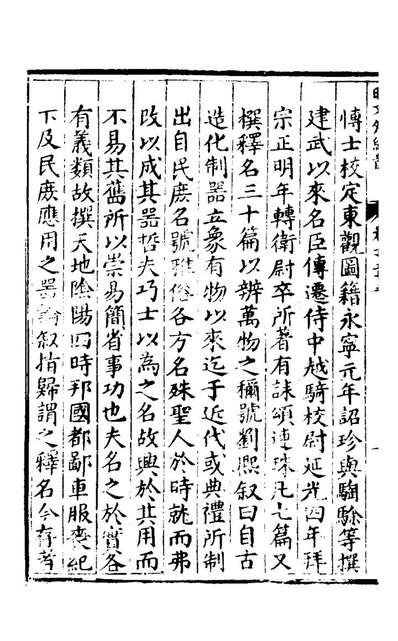 愽士校定東觀圖籍永寧元年詔珍與騊駼等撰
建武以來名臣傳遷侍中越騎校尉延光四年拜
宗正明年轉衛尉卒所著有誄頌連珠凡七篇又
撰釋名三十篇以辨萬物之稱號劉熙叙曰自古
造化制器立象有物以來迄于近代或典禮所制
出自民庶名號雅俗各方名殊聖人於時就而弗
改以成其器哲夫巧士以為之名故興於其用而
不易其舊所以崇易簡省事功也夫名之於實各
有義類故撰天地陰陽四時邦國都鄙車服喪紀
下及民庶應用之器論叙指歸謂之釋名今存者